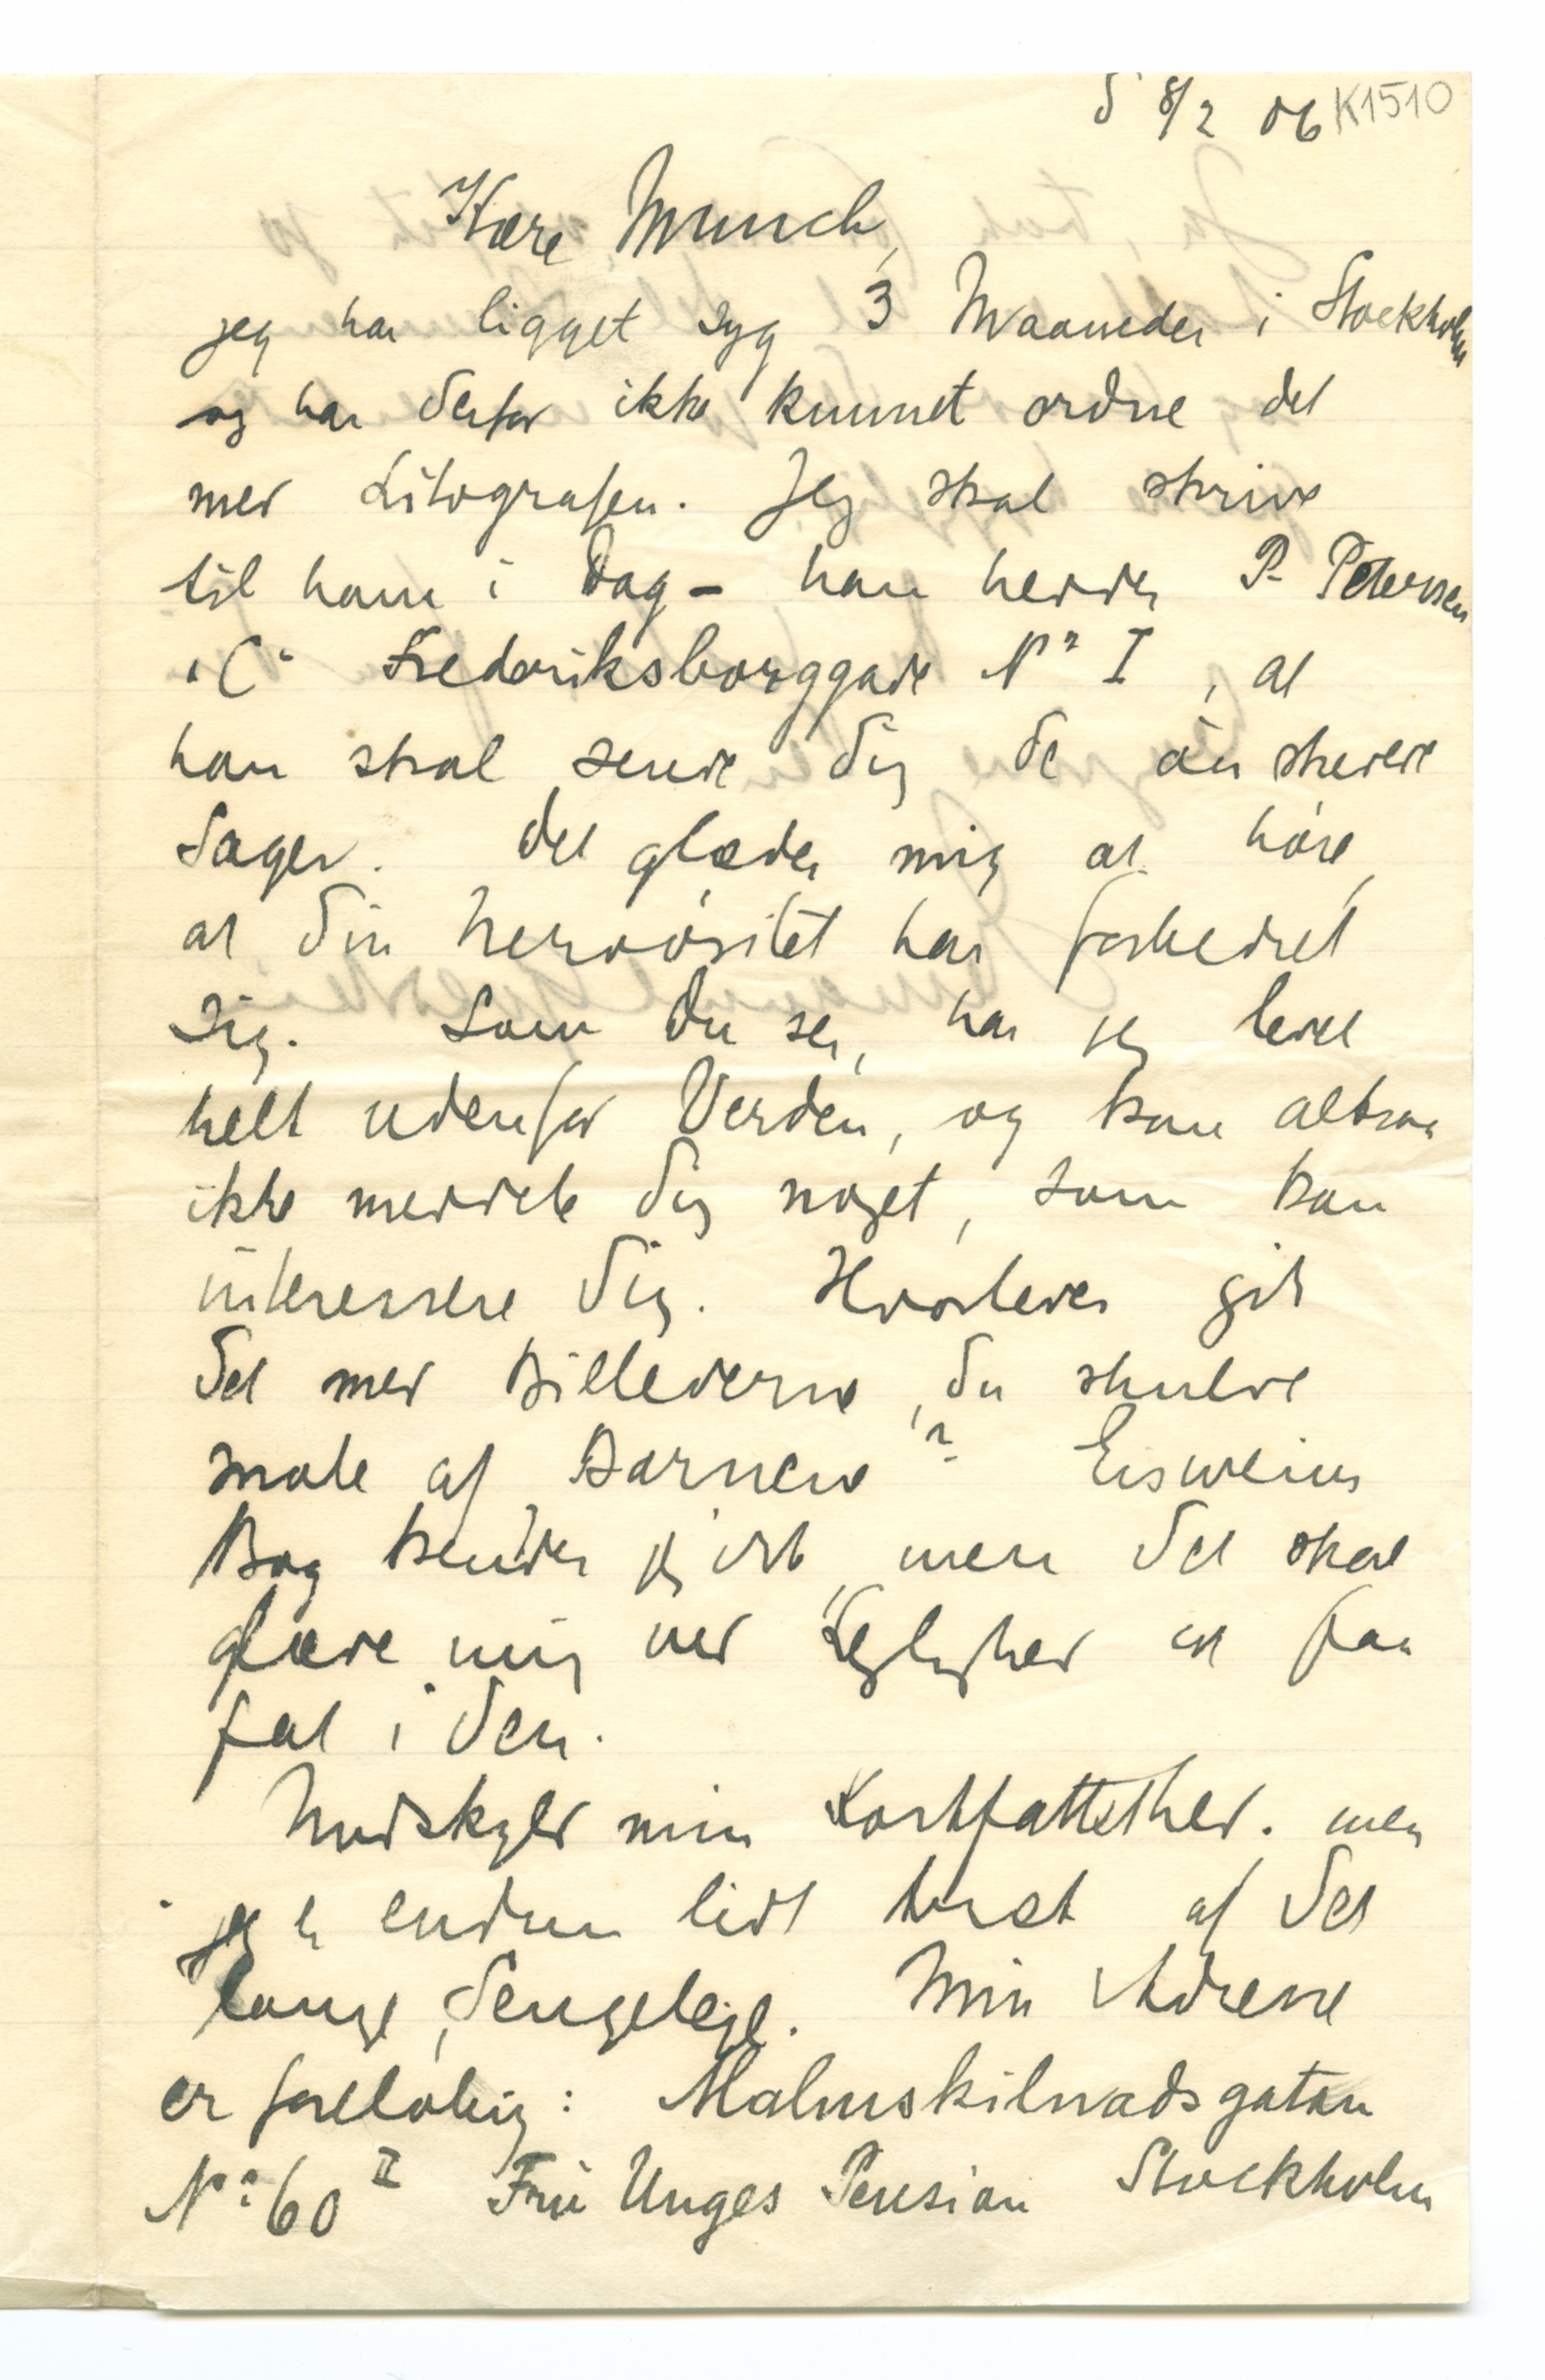 d 8/2 06 K1510
Kære Munch,
jeg har ligget syg 3 Maaneder i Stockholm
og har derfor ikke kunnet ordne det
med Litografen. Jeg skal skrive
til ham i Dag – han hedder P. Petersen
i C. Frederiksborggade No I, at
han skal sende dig de ønskede
Sager. Det glæder mig at høre,
at din Nervøsitet har forbedret
sig. Som du ser, har jeg levet
helt udenfor Verden, og kan altsaa
ikke meddele dig noget, som kan
interessere dig. Hvorledes gik
det med Billederne, du skulde
male af Børnene? Eisweins
Bog kender jeg ikke, men det skal
glæde mig ved Lejlighed at faa
fat i den.
Undskyld min Kortfattethed. men
jeg er endnu lidt træt af det
lange Sengeleje. Min Adresse
er foreløbig: Malmskilnadsgatan
No 60 II Fru Unges Pension Stockholm